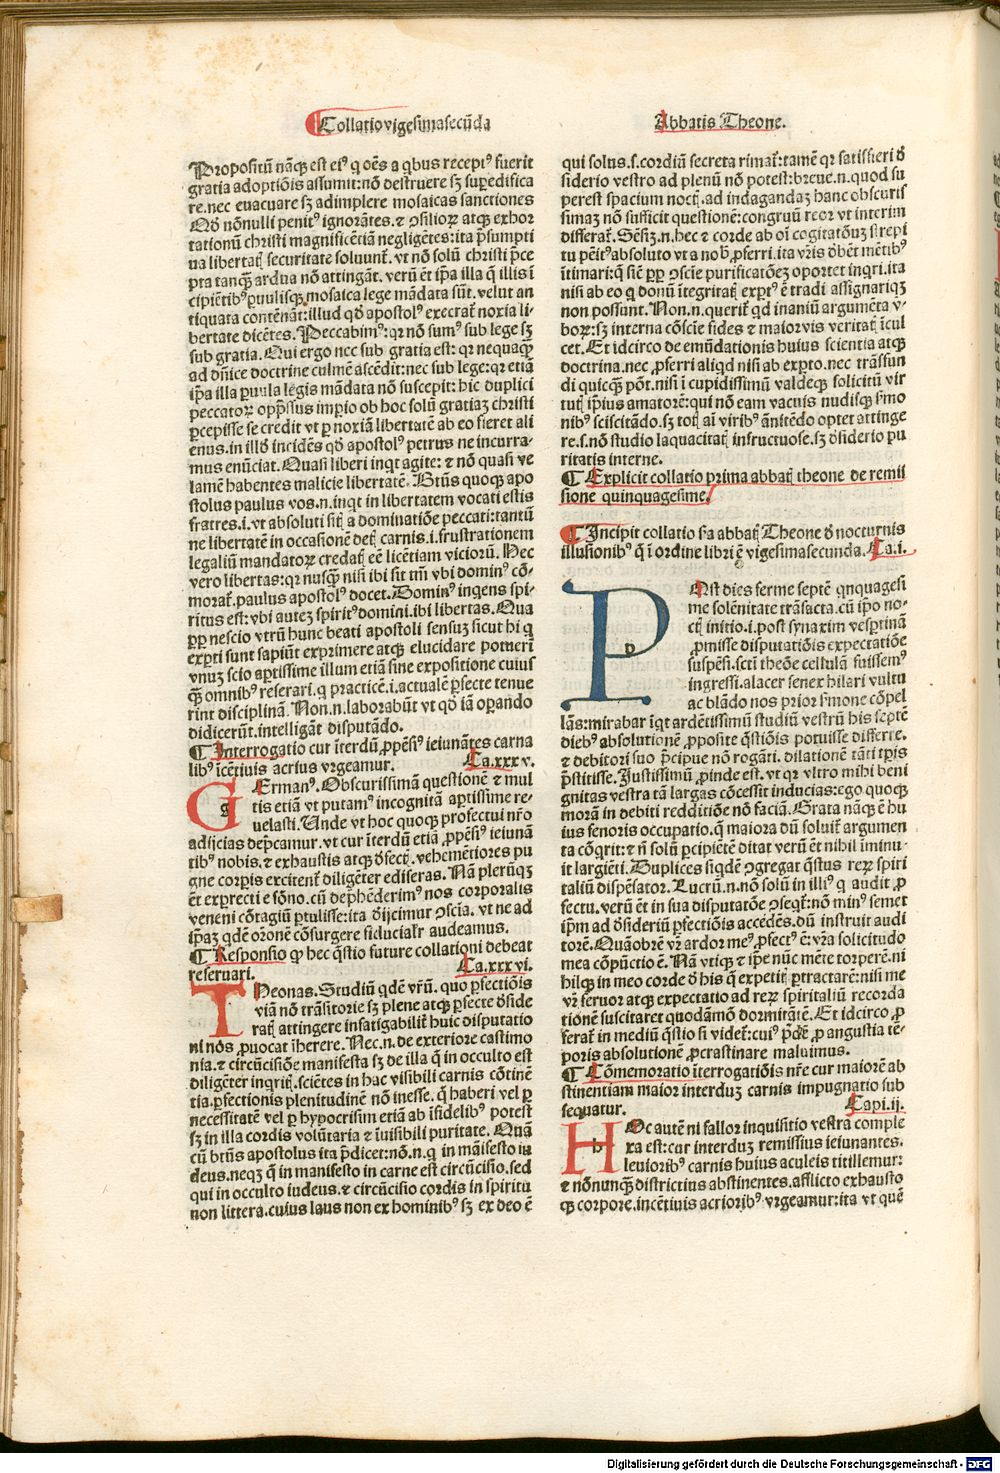 Collatio vigesimasecũda
Abbatis Theone.
Propositũ nãq̃ est ei⁹ q oẽs a qbus recept⁹ fuerit
gratia adoptiõis assumit: nõ destruere sꝫ supedifica
re. nec euacuare sꝫ adimplere mosaicas sanctiones
Qđ nõnulli penit⁹ ignorãtes. ⁊ ꝯsilioꝝ atqꝫ exhor
tationũ christi magnificẽtiã negligẽtes: ita p̃sumpti
ua libertatꝭ securitate soluunt̃. vt nõ solũ christi p̃ce
pta tanqꝫ ardua nõ attingãt. verũ et ip̃a illa q̃ illis ĩ
cipiẽtib⁹ ꝑuulisqꝫ mosaica lege mãdata sũt. velut an
tiquata contẽnãt: illud qđ apostol⁹ execrat̃ noxia li
bertate dicẽtes. Peccabim⁹: qꝛ nõ sum⁹ sub lege sꝫ
sub gratia. Qui ergo nec sub gratia est: qꝛ nequaqꝫ
ad dñice doctrine culmẽ ascẽdit: nec sub lege: qꝛ etiã
ip̃a illa ꝑuula legis mãdata nõ suscepit: hic duplici
peccatoꝝ opp̃ssus imꝑio ob hoc solũ gratiaꝫ christi
ꝑcepisse se credit vt ꝑ noxiã libertatẽ ab eo fieret ali
enus. in illđ incidẽs qđ apostol⁹ petrus ne incurra⸗
mus enũciat. Quasi liberi inqt agite: ⁊ nõ quasi ve
lamẽ habentes malicie libertatẽ. Btũs quoqꝫ apo
stolus paulus vos. n. inqt in libertatem vocati estis
fratres. i. vt absoluti sitꝭ a dominatiõe peccati: tantũ
ne libertatẽ in occasionẽ detꝭ carnis. i. frustrationem
legaliũ mandatoꝝ credatꝭ eẽ licẽtiam vicioꝝ. Hec
vero libertas: qꝛ nusqꝫ nisi ibi sit tm̃ vbi domin⁹ cõ⸗
morat̃. paulus apostol⁹ docet. Domin⁹ inqens spi⸗
ritus est: vbi auteꝫ spirit⁹ domini. ibi libertas. Qua
ꝓpꝑ nescio vtrũ hunc beati apostoli sensuꝫ sicut hi q
exꝑti sunt sapiũt exprimere atqꝫ elucidare potueri
vnuꝫ scio aꝑtissime illum etiã sine expositione cuius
qꝫ omnib⁹ reserari. q practicẽ. i. actualẽ ꝑfecte tenue
rint disciplinã. Non. n. laborabũt vt qđ iã oꝑando
didicerũt. intelligãt disputãdo.
¶ Interrogatio cur ĩterdũ ꝓpẽsi⁹ ieiunãtes carna
lib⁹ ĩcẽtiuis acrius vrgeamur. Ca. xxxv.
Germanꝰ. Obscurissimã questionẽ ⁊ mul
tis etiã vt putam⁹ incognitã aꝑtissime re⸗
uelasti. Unde vt hoc quoqꝫ profectui nr̃o
adijcias dep̃camur. vt cur ĩterdũ etiã ꝓpẽsi⁹ ieiunã
tib⁹ nobis. ⁊ exhaustis atqꝫ đfectꝭ. vehemẽtiores pu
gne corꝑis excitent̃ diligẽter edisseras. Nã plerũqꝫ
et exꝑrecti e sõno. cũ dep̃hẽderim⁹ nos corporalis
veneni cõtagiũ ꝑtulisse: ita đijcimur ꝯscia. vt ne ad
ip̃aꝫ qdẽ or̃onẽ cõsurgere fiducialr̃ audeamus.
¶ Responsio ꝙ hec q̃stio future collationi debeat
reseruari. Ca. xxxvi.
Theonas. Studiũ qdẽ vr̃ũ. quo ꝑfectiõis
viã nõ trãsitorie sꝫ plene atqꝫ ꝑfecte đside
ratꝭ attingere infatigabilit̃ huic disputatio
ni nos ꝓuocat ĩherere. Nec. n. de exteriore castimo
nia. ⁊ circũcisiõe manifesta sꝫ de illa q̃ in occulto est
diligẽter inqritꝭ. sciẽtes in hac visibili carnis cõtinẽ
tia. ꝑfectionis plenitudinẽ nõ inesse. q̃ haberi vel ꝑ
necessitatẽ vel ꝑ hypocrisim etiã ab ĩfidelib⁹ potest
sꝫ in illa cordis volũtaria ⁊ ĩuisibili puritate. Quã
cũ btũs apostolus ita p̃dicet: nõ. n. q in mãifesto iu
deus. neqꝫ q̃ in manifesto in carne est circũcisio. sed
qui in occulto iudeus. ⁊ circũcisio cordis in spiritu
non littera. cuius laus non ex hominib⁹ sꝫ ex deo ẽ
qui solus. s. cordiũ secreta rimat̃: tamẽ qꝛ satisfieri đ
siderio vestro ad plenũ nõ potest: breue. n. quod su
perest spacium noctꝭ. ad indagandaꝫ hanc obscuris
simaꝫ nõ sufficit questionẽ: congruũ reor vt interim
differat̃. Sẽsiꝫ. n. hec ⁊ corde ab oĩ cogitatõuꝫ strepi
tu pẽit⁹ absoluto vt a nob̃ ꝓferri. ita vr̃is đbẽt mẽtib⁹
ĩtimari: q̃ siẽ ꝑꝑ ꝯscie purificatõeꝫ oportet inqri. ita
nisi ab eo q donũ ĩtegritatꝭ exꝑt⁹ ẽ tradi assignariqꝫ
non possunt. Non. n. querit̃ qd inaniũ argumẽta v⸗
boꝝ: sꝫ interna cõscie fides ⁊ maior vis veritatꝭ ĩcul
cet. Et idcirco de emũdationis huius scientia atqꝫ
doctrina. nec ꝓferri aliqd nisi ab exꝑto. nec trãsfun
di quicqꝫ põt. nisi ĩ cupidissimũ valdeqꝫ solicitũ vir
tutꝭ ip̃ius amatorẽ: qui nõ eam vacuis nudisqꝫ s̃mo
nib⁹ sciscitãdo. sꝫ totꝭ aĩ virib⁹ ãnitẽdo optet attinge
re. s. nõ studio laquacitatꝭ infructuose. sꝫ đsiderio pu
ritatis interne.
¶ Explicit collatio prima abbatꝭ theone de remis
sione quinquagesime.
¶ Incipit collatio s̃a abbatꝭ Theone đ nocturnis
illusionib⁹ q̃ ĩ ordine libri ẽ vigesimasecunda. Ca. i.
Post dies ferme septẽ qnquagesi
me solẽnitate trãsacta. cũ ip̃o no⸗
ctꝭ initio. i. post synaxim vesꝑtinã
ꝓmisse disputatiõis expectatiõe
suspẽsi. sct̃i theõe cellulã fuissem⁹
ingressi. alacer senex hilari vultu
ac blãdo nos prior s̃mone cõpel
lãs: mirabar ĩqt ardẽtissimũ studiũ vestrũ his septẽ
dieb⁹ absolutionẽ ꝓposite q̃stiõis potuisse differre.
⁊ debitori suo p̃cipue nõ rogãti. dilationẽ tãti tꝑis
p̃stitisse. Justissimũ ꝓinde est. vt qꝛ vltro mihi beni
gnitas vestra tã largas cõcessit inducias: ego quoqꝫ
morã in debiti redditiõe nõ faciã. Grata nãqꝫ ẽ hu
ius fenoris occupatio. q̃ maiora dũ soluit̃ argumen
ta cõqrit: ⁊ ñ solũ ꝑcipiẽtẽ ditat verũ et nihil ĩminu⸗
it largiẽti. Duplices siqdẽ ꝯgregat q̃stus reꝝ spiri
taliũ dispẽsator. Lucrũ. n. nõ solũ in illi⁹ q audit ꝓ
fectu. verũ et in sua disputatõe ꝯseqt̃: nõ min⁹ semet
ip̃m ad đsideriũ ꝑfectiõis accedẽs. dũ instruit audi
torẽ. Quãobrẽ vr̃ ardor me⁹ ꝓfect⁹ ẽ: vr̃a solicitudo
mea cõpũctio ẽ. Nã vtiqꝫ ⁊ ip̃e nũc mẽte torperẽ. ni
hilqꝫ in meo corde đ his q̃ expetitꝭ ꝑtractarẽ: nisi me
vr̃ feruor atqꝫ expectatio ad reꝝ spiritaliũ recorda
tionẽ suscitaret quodãmõ dormitãtẽ. Et idcirco ꝓ
ferat̃ in mediũ q̃stio si videt̃: cui⁹ p̃dẽ ꝓ angustia tẽ⸗
poris absolutionẽ ꝓcrastinare maluimus.
¶ Cõmemoratio ĩterrogatiõis nr̃e cur maiorẽ ab
stinentiam maior interduꝫ carnis impugnatio sub
sequatur. Capi. ij.
Hoc autẽ ni fallor inquisitio vestra comple
xa est: cur interduꝫ remissius ieiunantes.
leuiorib⁹ carnis huius aculeis titillemur:
⁊ nõnunqꝫ districtius abstinentes. afflicto exhausto
qꝫ corpore. incẽtiuis acriorib⁹ vrgeamur: ita vt quẽ
Digitalisierung gefördert durch die Deutsche Forschungsgemeinschaft - DFG